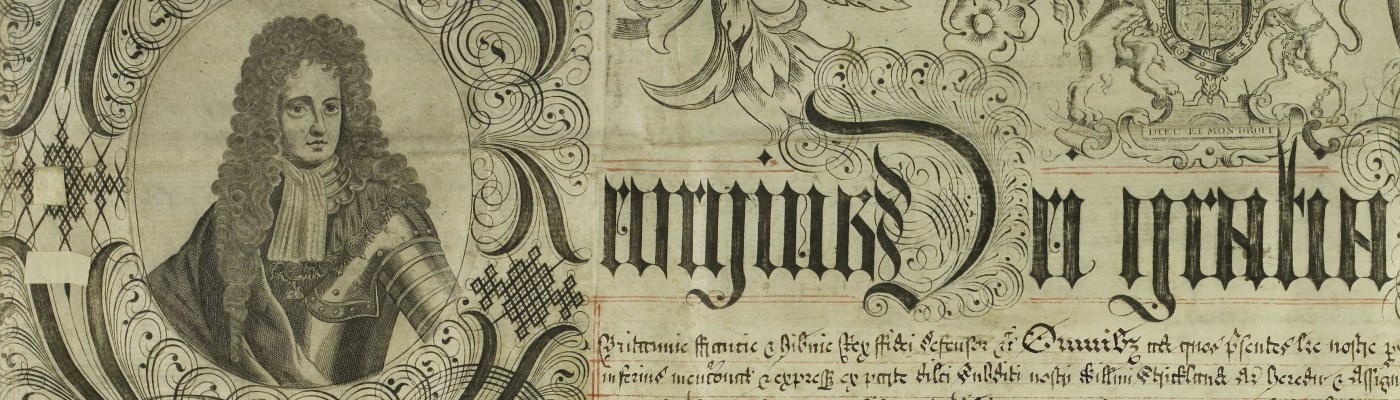 DIEU ET MON DROIT
eorgius Dei gratia
Britannie ffrancie & Hibnie Rex ffidei Defensor &c Omnibz ad quos p'sentes lre nostre
inferius menconat & express ex parte dilci Subditi nostri Willmi Strickland Ar Hered &